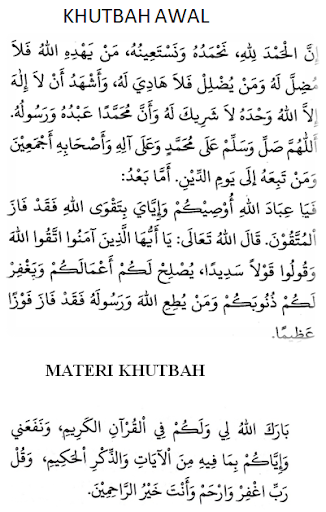 KHUTBAH AWAL
إِنَّ الْحَمْدَ لِلّٰهِ، نَحْمَدُهُ وَنَسْتَعِيْنُهُ، مَنْ يَهْدِهِ اللّٰهُ فَلاَ
مُضِلَّ لَهُ وَمَنْ يُضْلِلْ فَلاَ هَادِيَ لَهُ، وَأَشْهَدُ أَنْ لاَ إِلٰهَ
إِلاَّ اللّٰهُ وَحْدَهُ لاَ شَرِيكَ لَهُ وَأَنَّ مُحَمَّدًا عَبْدُهُ وَرَسُولُهُ.
اَللّٰهُمَّ صَلِّ وَسَلِّمْ عَلَى مُحَمَّدٍ وَعَلَى آلِهِ وَأَصْحَابِهِ أَجْمَعِيْنَ
وَمَنْ تَبِعَهُ إِلَى يَومِ الدِّيْنِ. أَمَّا بَعْدُ:
فَيَا عِبَادَ اللّٰهِ أُوْصِيْكُمْ وَإِيَّايَ بِتَقْوَى اللّٰهِ فَقَدْ فَازَ
الْمُتَّقُوْنَ. قَالَ اللّٰهُ تَعَالَى: يَا أَيُّهَا الَّذِيْنَ آمَنُوا اتَّقُوا اللّٰهَ
وَقُولُوا قَوْلاً سَدِيدًا، يُصْلِحْ لَكُمْ أَعْمَالَكُمْ وَيَغْفِرْ
لَكُمْ ذُنُوبَكُمْ وَمَنْ يُطِعِ اللّٰهَ وَرَسُولَهُ فَقَدْ فَازَ فَوْزًا
عَظِيمًا.
MATERI KHUTBAH
بَارَكَ اللّٰهُ لِي وَلَكُمْ فِي الْقُرْآنِ الكَرِيمِ، وَنَفَعَنِي
وَإِيَّاكُمْ بِمَا فِيهِ مِنَ الْآيَاتِ وَالذِّكْرِ الْحَكِيمِ، وَقُلْ
رَبِّ اغْفِرْ وَارْحَمْ وَأَنْتَ خَيْرُ الرَّاحِمِيْنَ.